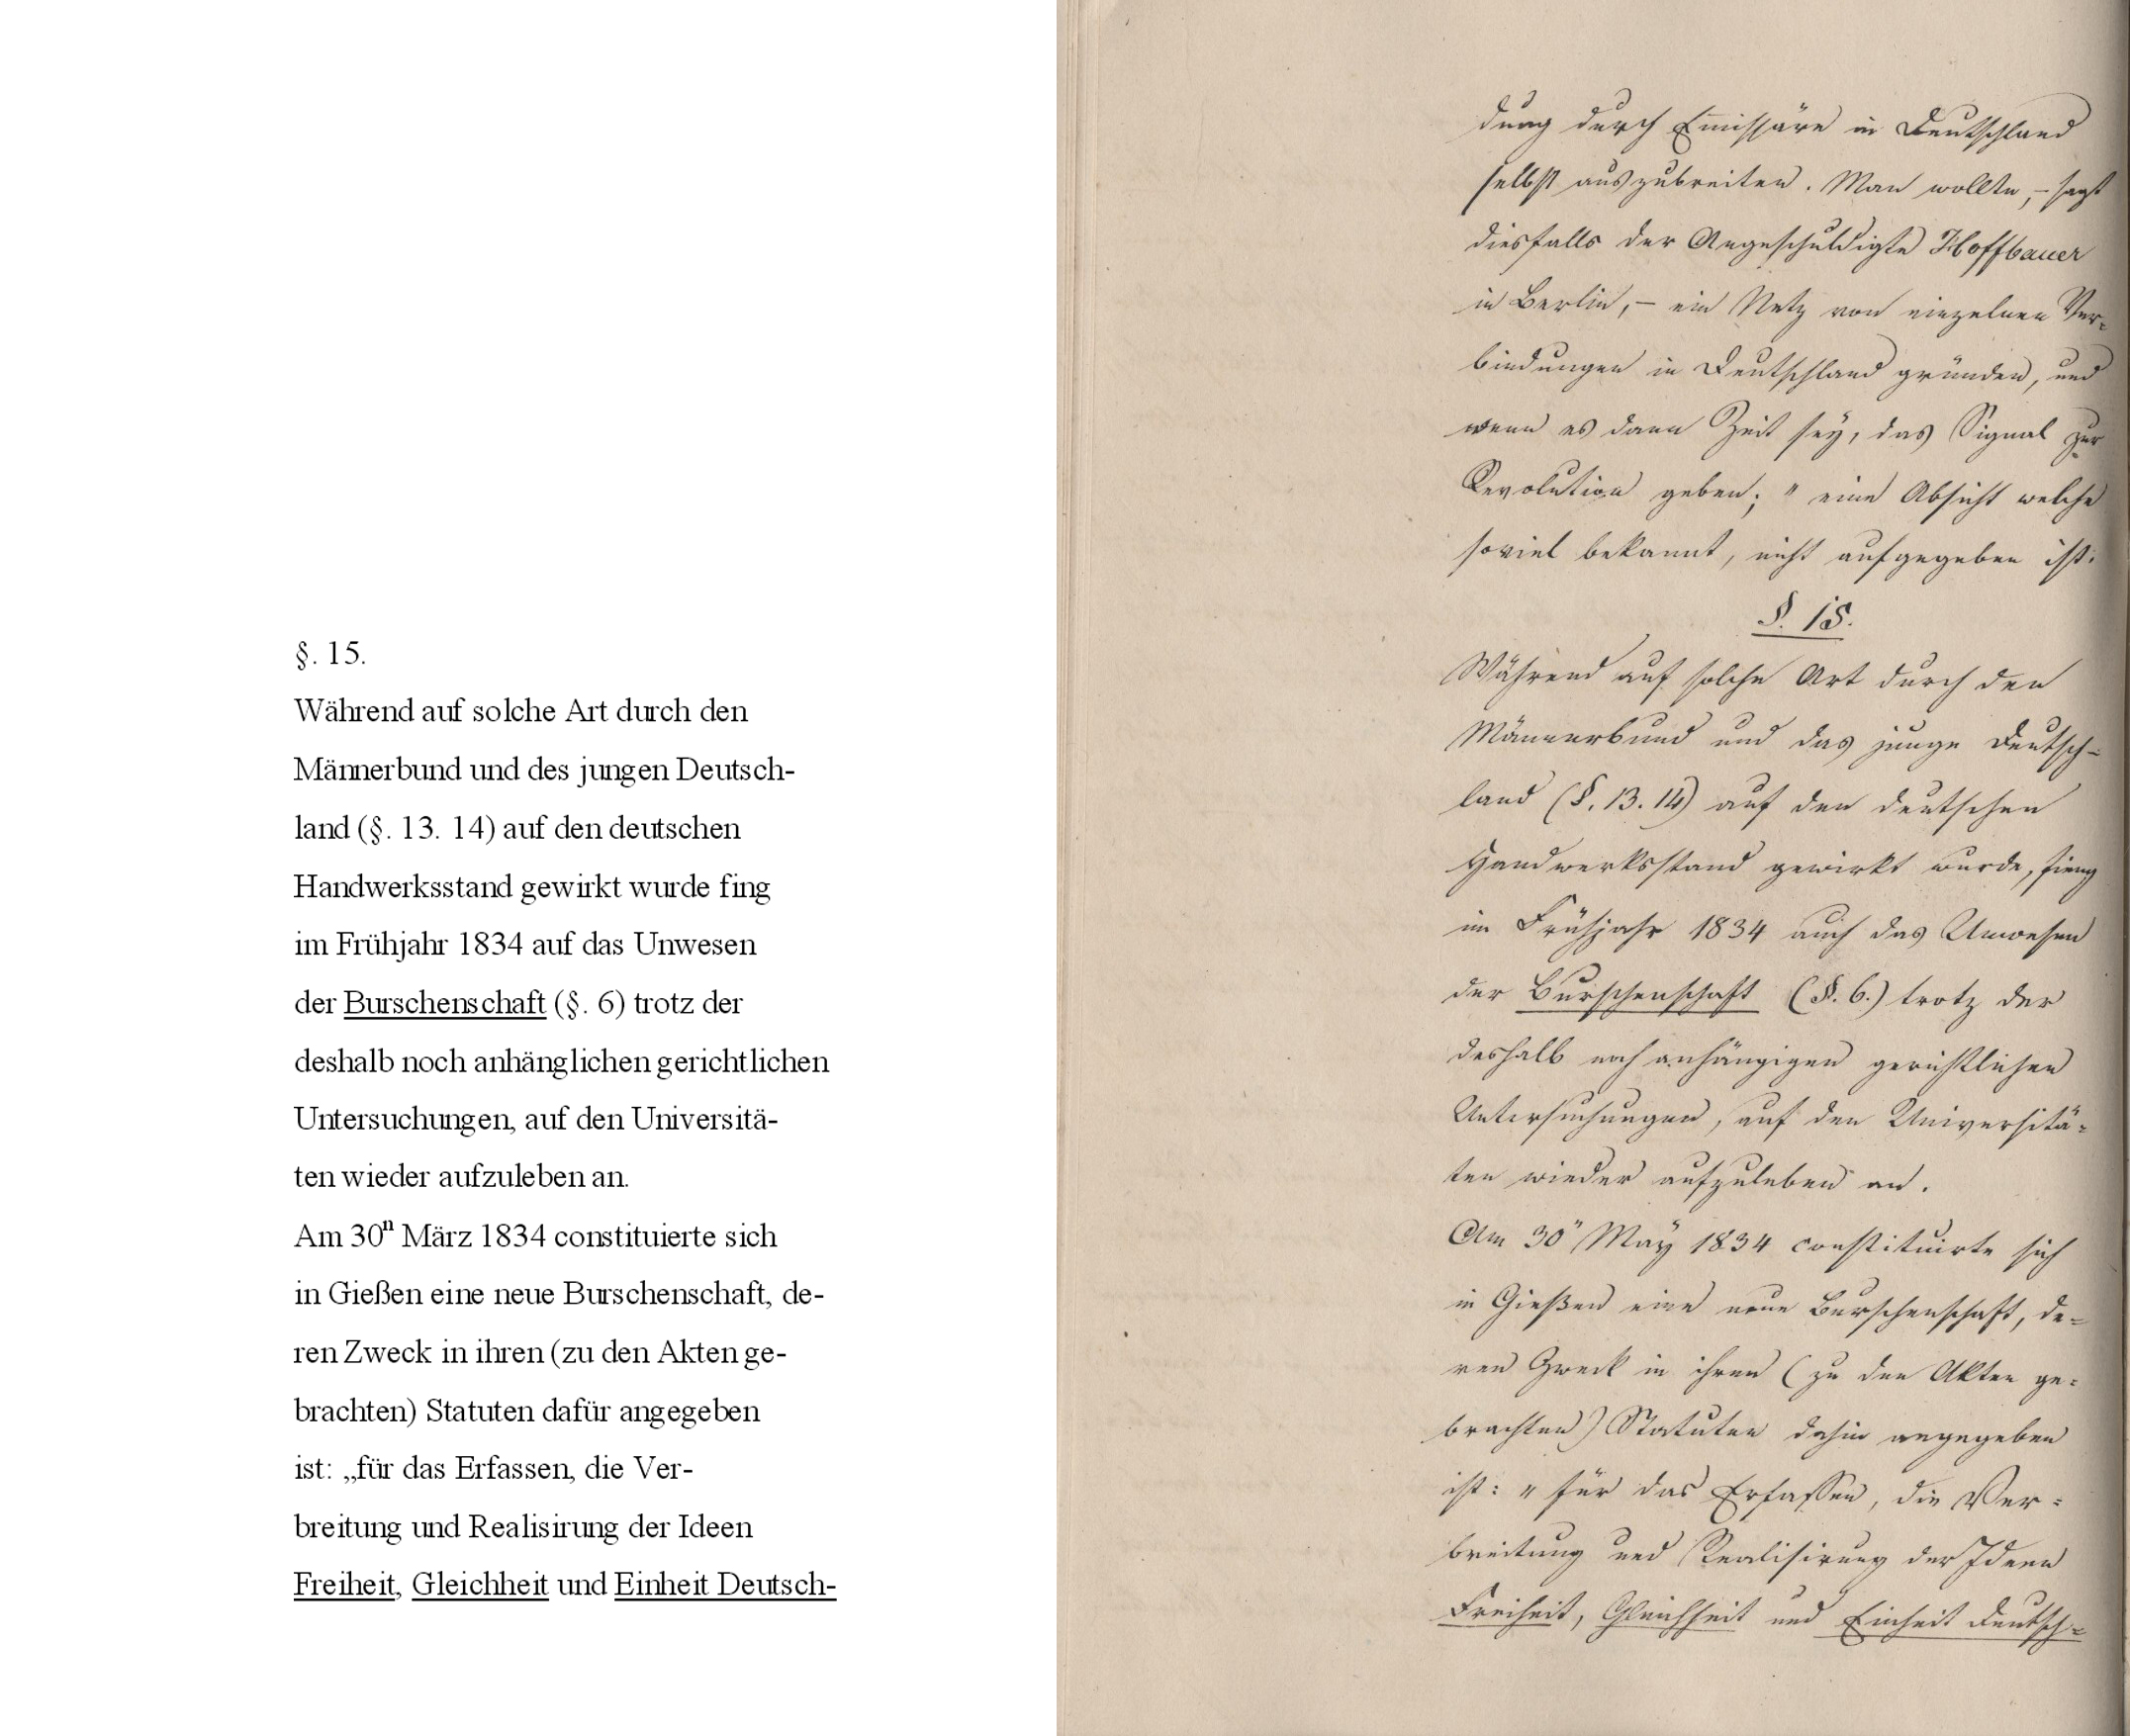 §. 15.
Während auf solche Art durch den
Männerbund und des jungen Deutsch-
land (§. 13. 14) auf den deutschen
Handwerksstand gewirkt wurde fing
im Frühjahr 1834 auf das Unwesen
der Burschenschaft (§. 6) trotz der
deshalb noch anhänglichen gerichtlichen
Untersuchungen, auf den Universitä-
ten wieder aufzuleben an.
Am 30n März 1834 constituierte sich
in Gießen eine neue Burschenschaft, de-
ren Zweck in ihren (zu den Akten ge-
brachten) Statuten dafür angegeben
ist: „für das Erfassen, die Ver-
breitung und Realisirung der Ideen
Freiheit, Gleichheit und Einheit Deutsch-
dung durch Emissäre in Deutschland
selbst auszubreiten. Man wollte, – sagt
diesfalls der Angeschuldigte Hoffbauer
in Berlin, – ein Netz von einzelnen Ver-
bindungen in Deutschland gründen, und
wenn es dann Zeit sey, das Signal zur
Revolution geben; " eine Absicht welche
soviel bekannt, nicht aufgegeben ist.
§. 15.
Während auf solche Art durch den
Männerbund und das junge Deutsch-
land (§. 13. 14) auf den deutschen
Handwerksstand gewirkt wurde, fieng
im Frühjahr 1834 auch das Unwesen
der Burschenschaft (§. 6.) trotz der
deshalb noch anhängigen gerichtlichen
Untersuchungen, auf den Universitä-
ten wieder aufzuleben an.
Am 30" May 1834 constituirte sich
in Gießen eine neue Burschenschaft, de-
ren Zweck in ihren (zu den Akten ge-
brachten) Statuten dahin angegeben
ist: " für das Erfassen, die Ver-
breitung und Realisirung der Ideen
Freiheit, Gleichheit und Einheit Deutsch-